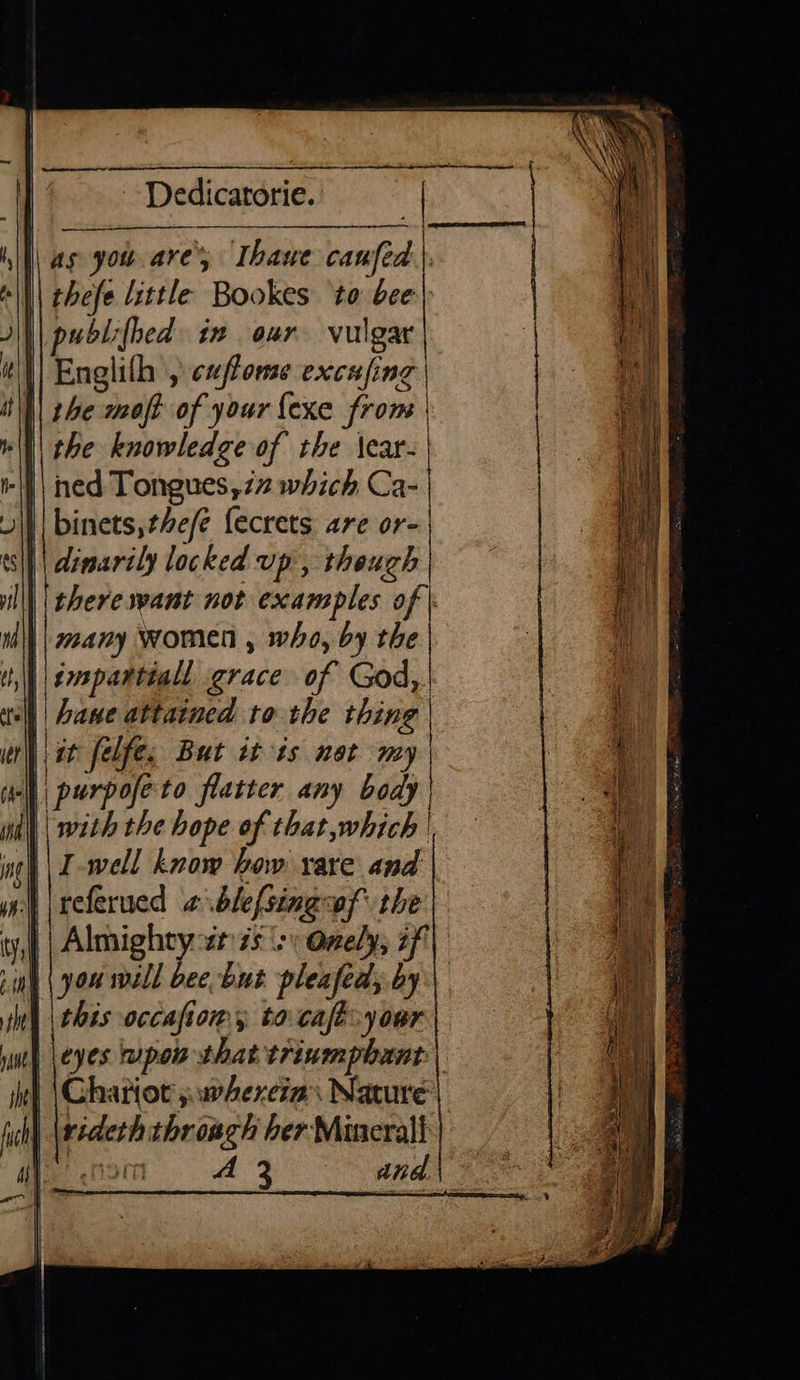 Dedicatorie.
as you are, I haue cauſed
theſe little Bookes to bee
publiſhed in our vulgar
Engliſh, cuſtome excuſing
the moſt of your ſexe from
the knowledge of the lear-
ned Tongues, in which Ca-
binets, theſe ſecrets are or-
dinarily locked vp, though
there want not examples of
many women, who, by the
impartiall grace of God,
haue attained to the thing
it ſelfe. But it is not my
purpoſe to flatter any body
with the hope of that, which
I well know how rare and
reſerued a bleſsing of the
Almighty it is: Onely, if
you will bee but pleaſed, by
this occaſion, to caſt your
eyes vpon that triumphant
Chariot, wherein Nature
rideth through her Minerall
A 3 and